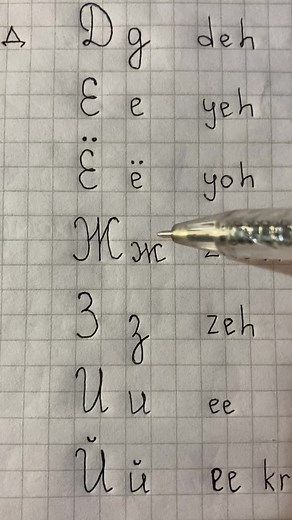 Д Д д deh
Е е yeh
Ё ё yoh
Ж ж
З з zeh
И и ee
Й й ee kr